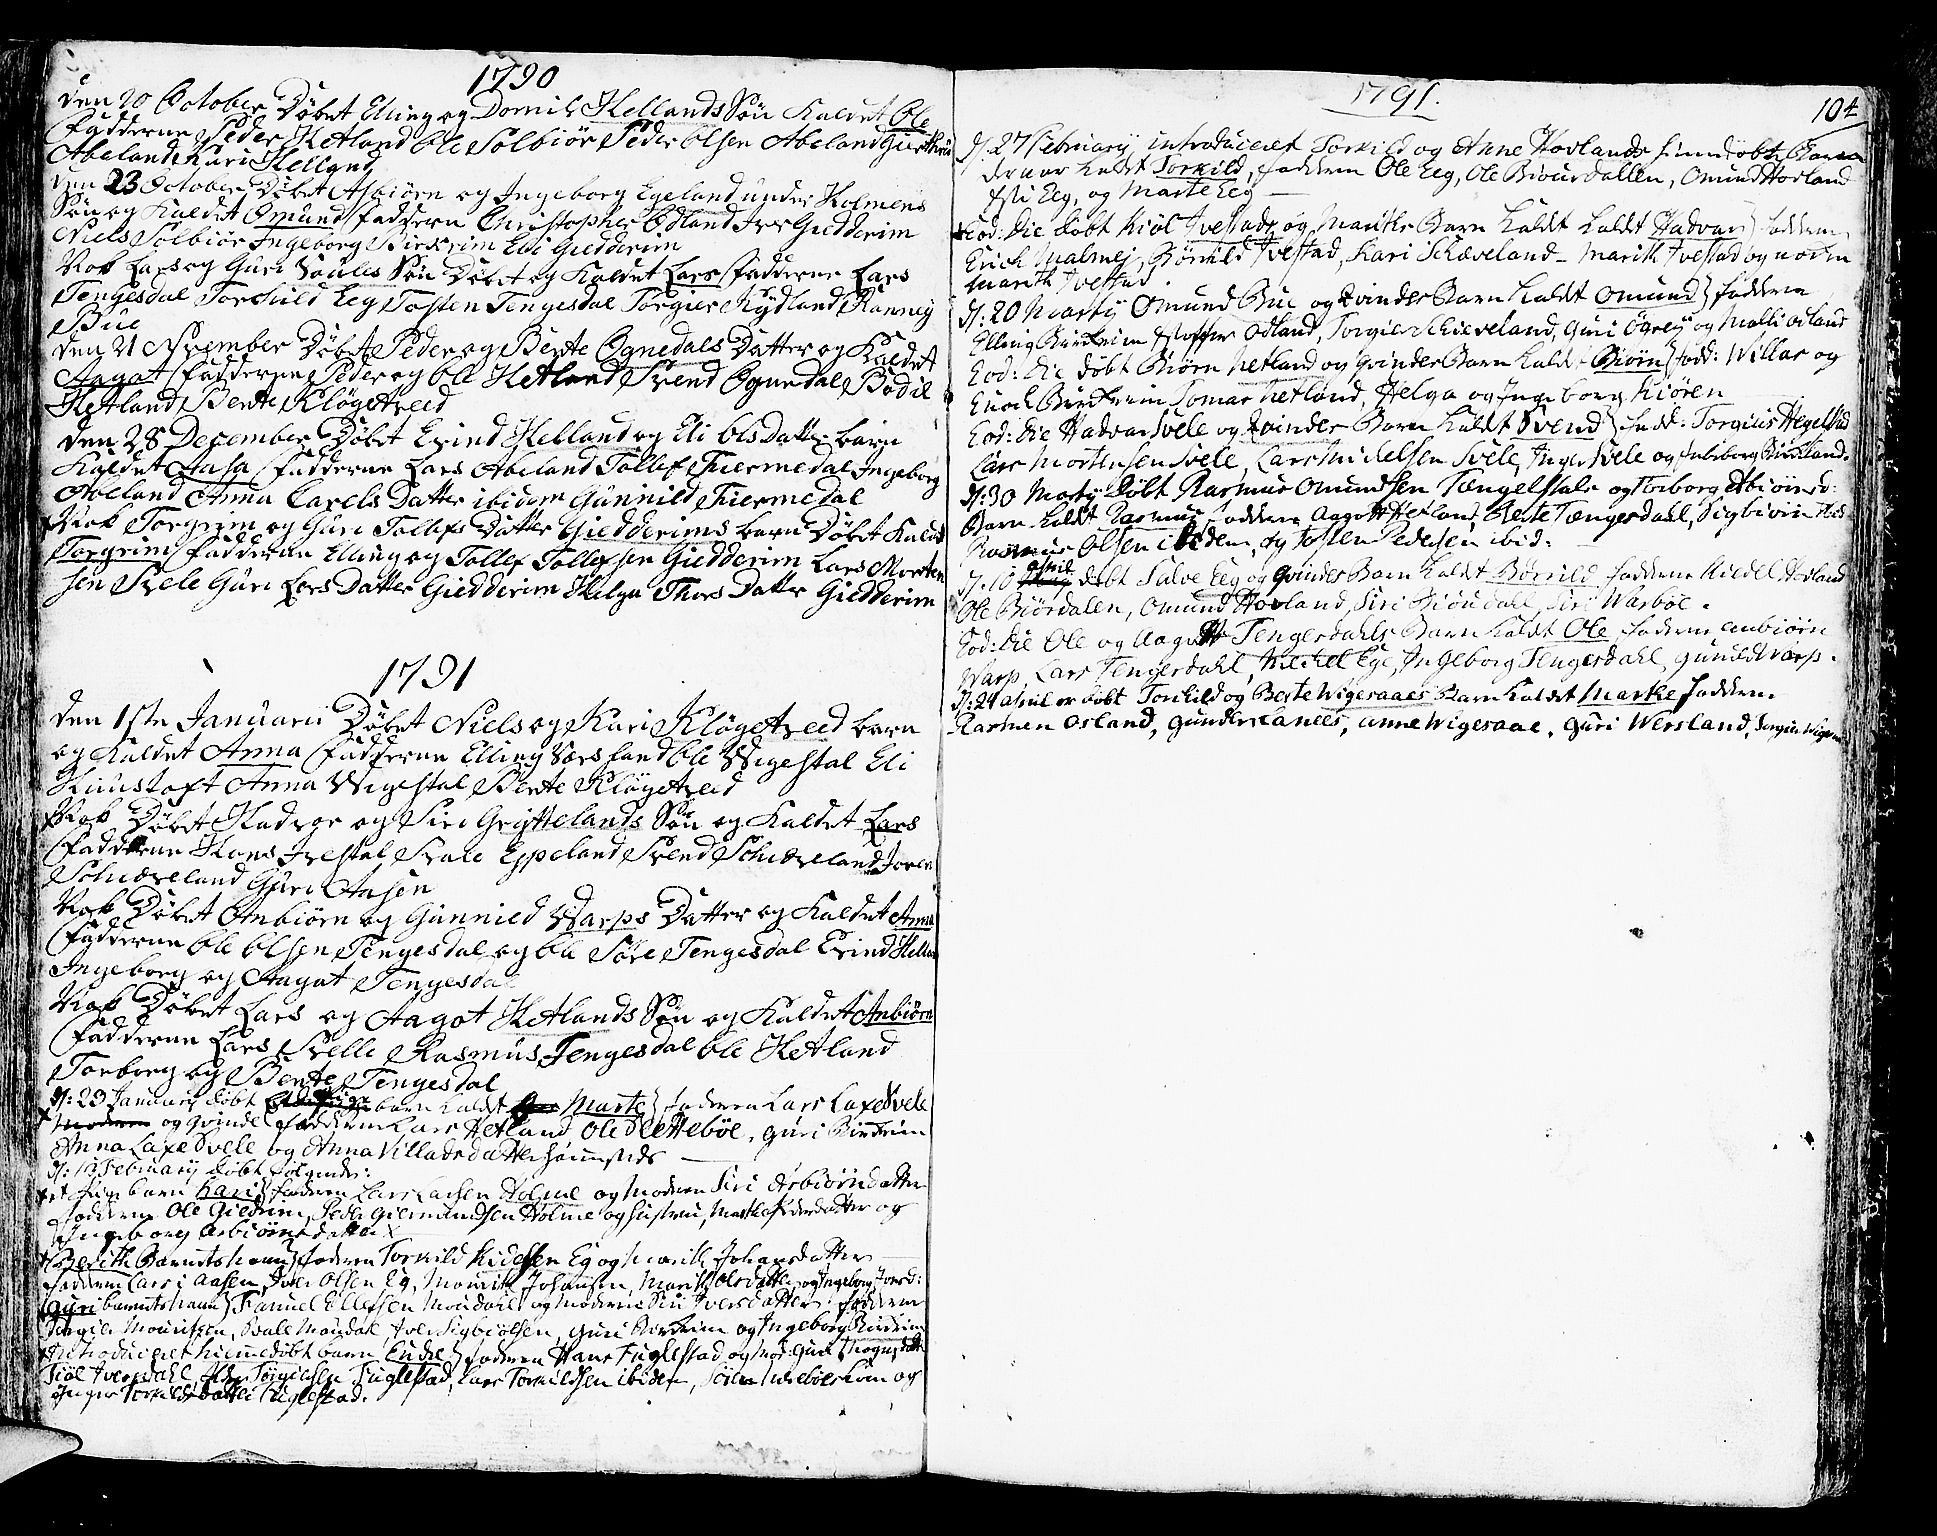 1790
den 20 October Döbet Elling og Dornil Hellands Sön Kaldet Ole
Fadderne Peder Hetland Ole Solbiör Peder Olsen Abeland
Abeland Kari Helland
den 23 October Döbet Asbiörn og Ingeborg Egeland under Holmens
Sön og Kaldet Omund Faddern Christopher Ödland Iver Giedderim
Niels Solbiör Ingeborg Birkrim Eli Giedderim
Nok Lars og Guri Saulis Sön Döbet og Kaldet Lars Fadderne Lars
Tengesdal Torchild Eeg Tosten Tengesdal Torgier Kydland Ranneÿ
Bue
den 21 November Döbet Peder og Berte Ognedals Datter og Kaldet
Aagot Fadderne Peder og Ole Hetland Svend Ognedal Bodil
Hetland Berte Klögetved
den 28 December Döbet Evind Helland og Eli Ols Datter barn
Kaldet Aasa Fadderne Lars Abeland Tollef Tiermedal Ingeborg
Abeland Anna Carels Datter ibidem Gunnild Tiermedal
Nok Torgrim og Guri Tollefs Datter Giedderims barn Döbet Kaldet
Torgrim Fadderne Elling og Tollef Tollefsen Giedderim Lars Morten
sen Svele Guri Lars Datter Giedderim Helga Thors Datter Giedderim
1791
den 1ste Januarii Döbet Niels og Kari Klögetveed barn
og Kaldet Anna Fadderne Elling Ole Wigestal Eli
Anna Wigestal Berte Klögetveed
Nok Döbet Hadvor og Siri Gryttelands Sön og Kaldet Lars
Fadderne Hans Ivestal Svale Eppeland Svend Schiæveland
Schiæveland Guri Aasen
Nok Döbet Anbiörn og Gunnild Warps Datter og Kaldet Anna
Fadderne Ole Olsen Tengesdal og Ole Söve Tengesdal Evind
Ingeborg og Aagot Tengesdal
Nok Döbet Lars og Aagot Hetlands Sön og Kaldet Anbiörn
Fadderne Lars Svelle Rasmus Tengesdal Ole Hetland
Torborg og Berte Tengesdal
d: 23 January döbt barn Kaldet Marte faderen Lars Laxesvele
og Qvinde fadderne Lars Hetland Ole Slettebôe, Guri Birkrim
Anna Laxesvele og Anna Villadsdatter
d: 13 February döbt fölgende:
barn Kari faderen Lars Larsen Holme og Moderen Siri Asbiörndatter
Fadderne Ole Giedrim, Peder Giermundsen Holme og hustru, Marthe Pedersdatter og
Ingeborg Asbiörnsdatter
Berith Barnets navn faderen Torkild Eg og Marith Johansdatter
Faddern Lars i Aasen, Iver Olsen Eg, Johansen, Marith Olsdatter og Ingeborg Iversd:
Guri barnets navn Samuel Ellefsen Moudahl og Moderen Siri Iversdatter: fadderne
Torgier Mouritsen, Svale Moudal, Iver Sigbiörsen, Guri Birkrim og Ingeborg Birkrim
Introduceret hiemmedöbt barn Endre faderen Hans Fuglestad og mod: Guri
Fiöl Iversdahl, Torgiersen Fuglestad, Lars Torkildsen ibidem, og
Inger Torkildsdatter Fuglestad.
1791.
104
d: 27 February introduceret Torkild og Anne Hovlands hiemdöbte Barn
der var Kaldt Torkild, fadderne Ole Eeg, Ole Biöurdallen, Omund Hovland
Eeg, og Marte Eeg
Eod: Die döbt Kiöl Ivestads og Marithe Barn Kaldt Kaldt Hadvar faddern
Erich Malmej, Börild Ivestad, Kari Schæveland - Marith Ivestad og noch en
Marith Ivestad.
d: 20 Marty Omund Bue og Qvindes Barn Kaldt Omund faddern
Elling Birkrim Odland, Torgier Schieveland, Guri Ögreÿ og Malli Odland
Eod: Die döbt Biörn Netland og Qvindes Barn Kaldt Biörn fadd: Willas og
Enoch Birkrim Tomas Netland, Helga og Ingeborg Kiören
Eod: Die Hadvar Svele og Qvindes Barn Kaldt Svend fadd: Torgius Hegelstad
Lars Mortensen Svele, Lars Michelsen Svele, Inger Svele og Ingeborg Birkland.
d: 30 Marty döbt Rasmus Omundsen Tengelsdals og Torborg Asbiörnsd:
Barn Kaldt Rasmus faddern Aagot Hetland, Berte Tengesdahl, Sigbiörn
Rasmus Olsen ibidem, og Tosten Pedersen ibid:
d: 10 April döbt Salve Eeg og Qvindes Barn Kaldt Börild faddern Hovland
Ole Biördalen, Omund Hovland, Siri Biöudahl, Siri Warbôe.
Eod: Die Ole og Aagot Tengesdahls Barn Kaldt Ole faddern Anbiörn
Warp, Lars Tengesdahl, Michel Ege, Ingeborg Tengesdahl, Gunild Warp.
d: 24 April er döbt Torkild og Berte Wigesaaes Barn Kaldet Marthe faddern
Rasmus Osland, Gunder Lanees, Anne Wigesaae, Guri Wersland, Torgier